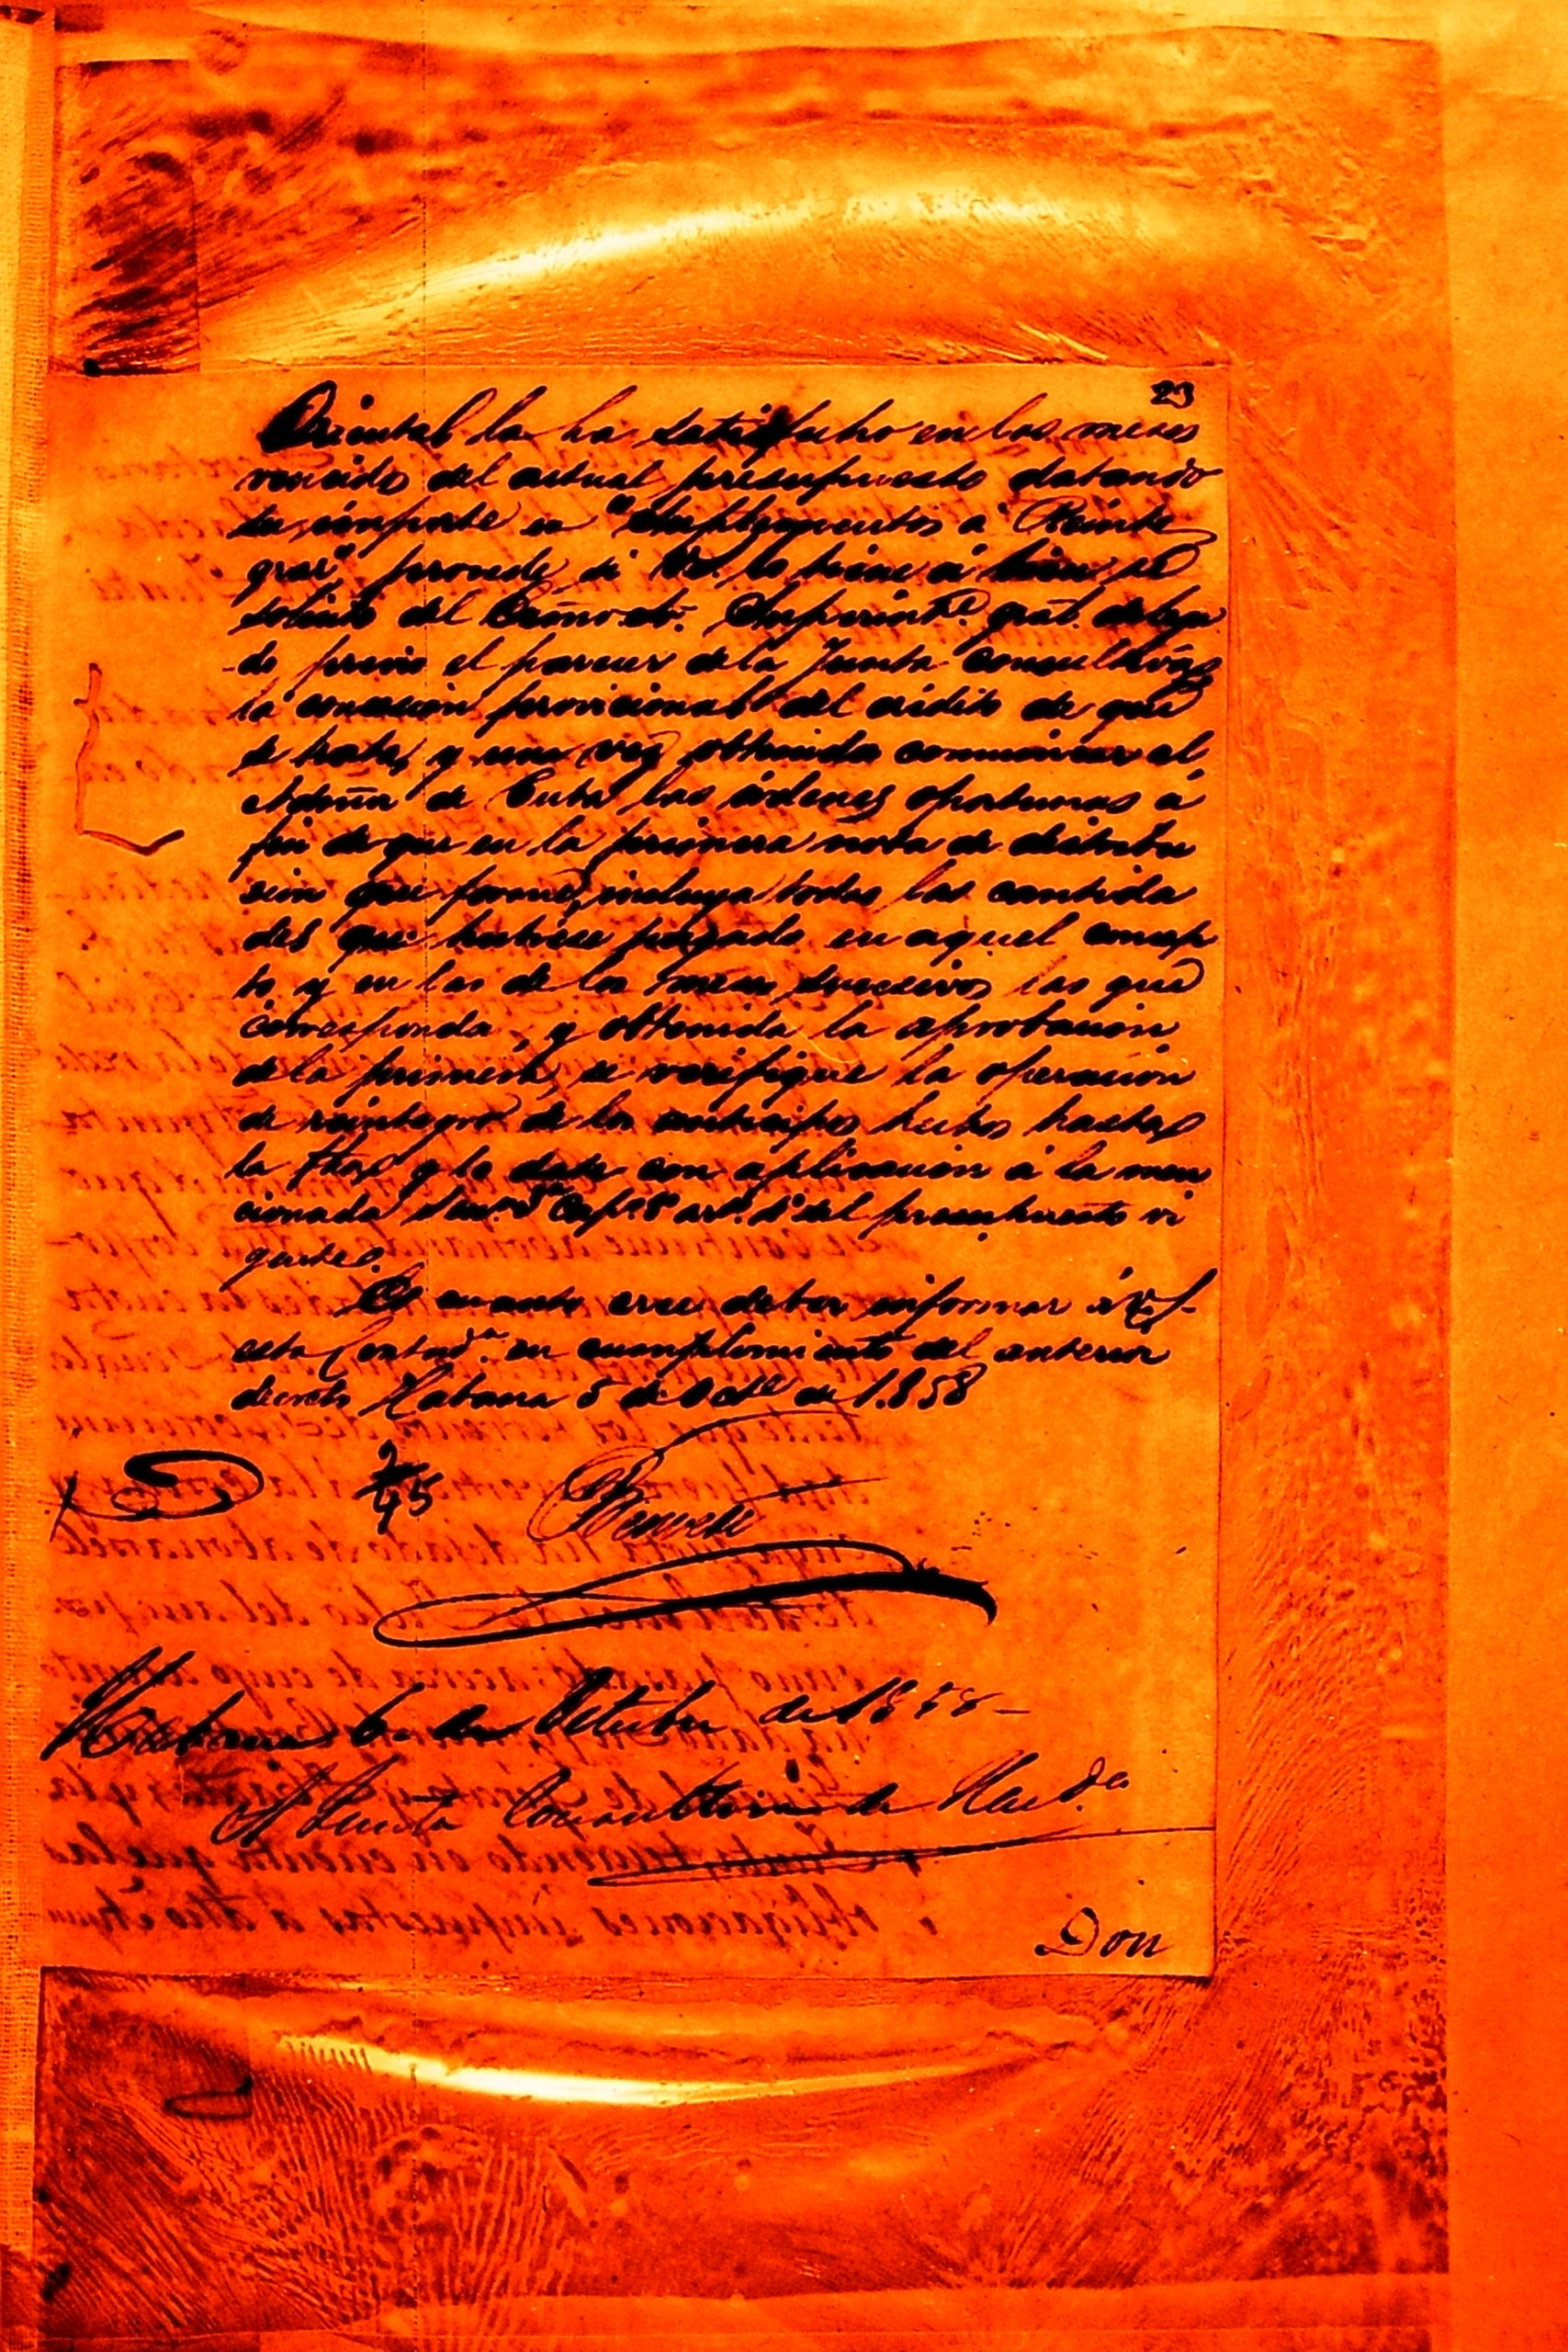 23
Oriental la ha satisfecho en los meses
vencido del actual presupuesto datando
su importe en "Suplementos a Reinte
grar" procede si lo tiene á bien
solicite del Superintte. gral. delega
do previo el parecer de la Junta Consultiva
la concesion provicional del crédito de que
se trata, y una vez obtenida comunicar al
de Cuba las órdenes oportunas á
fin de que en la primera nota de distribu
cion que forme, incluya todas las cantida
des que hubiese pagado en aquel concep
to y en las de los meses sucesivos las que
corresponda, y obtenida la aprobacion
de la primera, se verifique la operacion
de reintegro de los anticipos hechos hasta
la fha y lo date con aplicacion á la men
cionada Secn. Capo. 8 art. del presupuesto vi
gente.
Es cuanto cree deber informar á
esta Contada. en cumplimiento del anterior
decreto Habana 5 de Octe de 1.858
Habana 6 de Octubre de 1858-
A Junta Consultiva de Hacda
Don